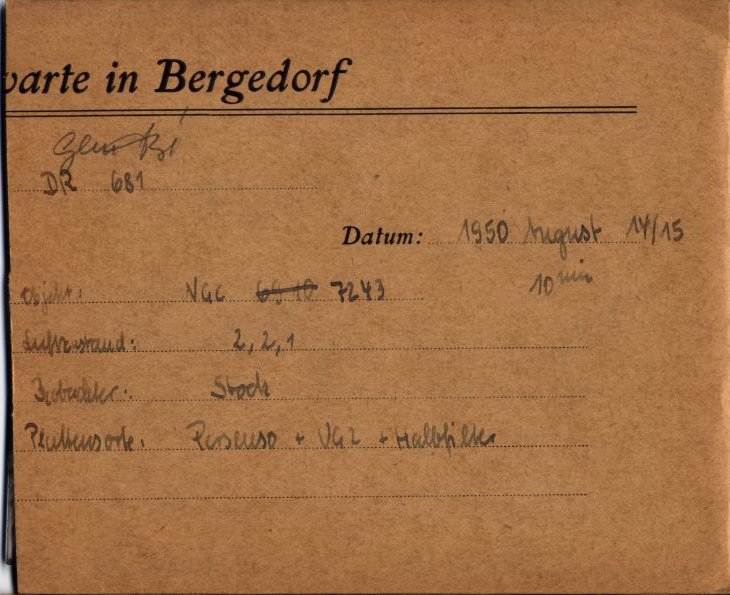 warte in Bergedorf
DR 681
Datum: 1950 August 14/15
Objekt: NGC 6910 7243 10 min
Luftzustand: 2, 2, 1
Beobachter: Stock
Plattensorte: Perseuso + VG2 + Halbfilter